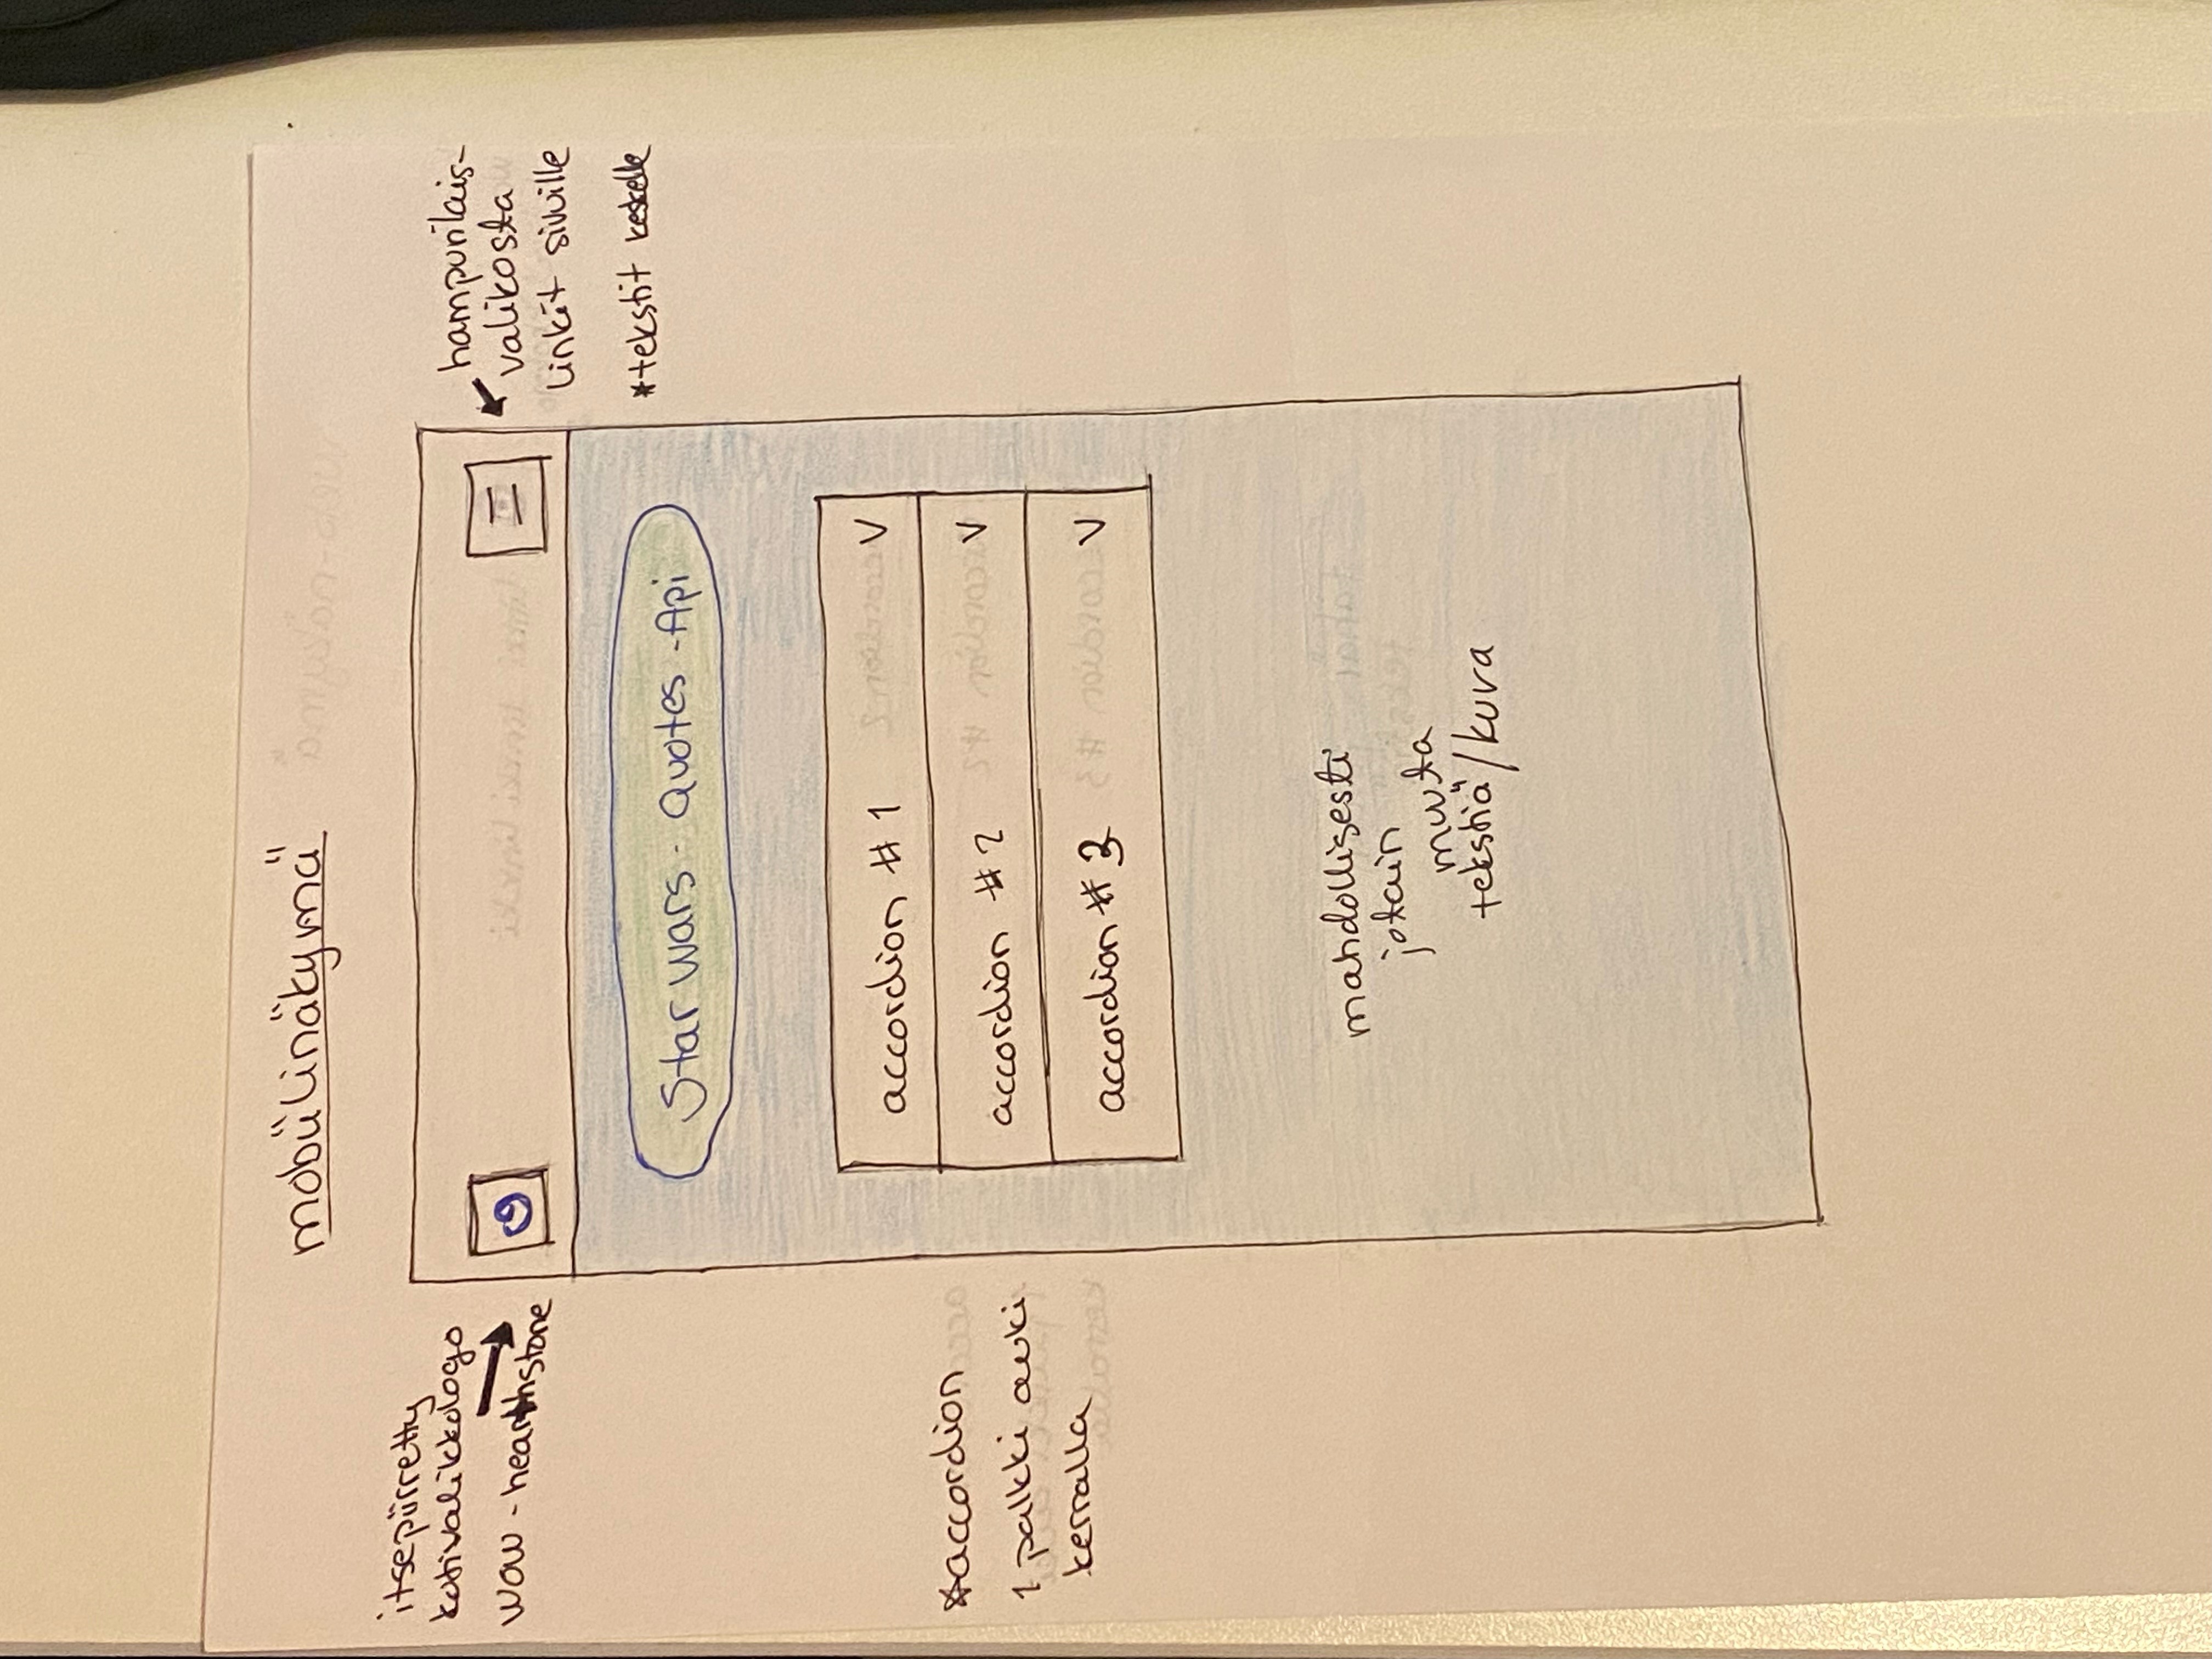 mobiilinäkymä
itsepiirretty
kotivalikkologo
wow - hearthstone
hampurilais-
valikosta
linkit sivuille
*tekstit keskelle
Star wars - Quotes - Api
accordion #1 V
accordion #2 V
accordion #3 V
*accordion
1 palkki auki
kerralla
mahdollisesti
jotain
muuta
tekstiä/kuva